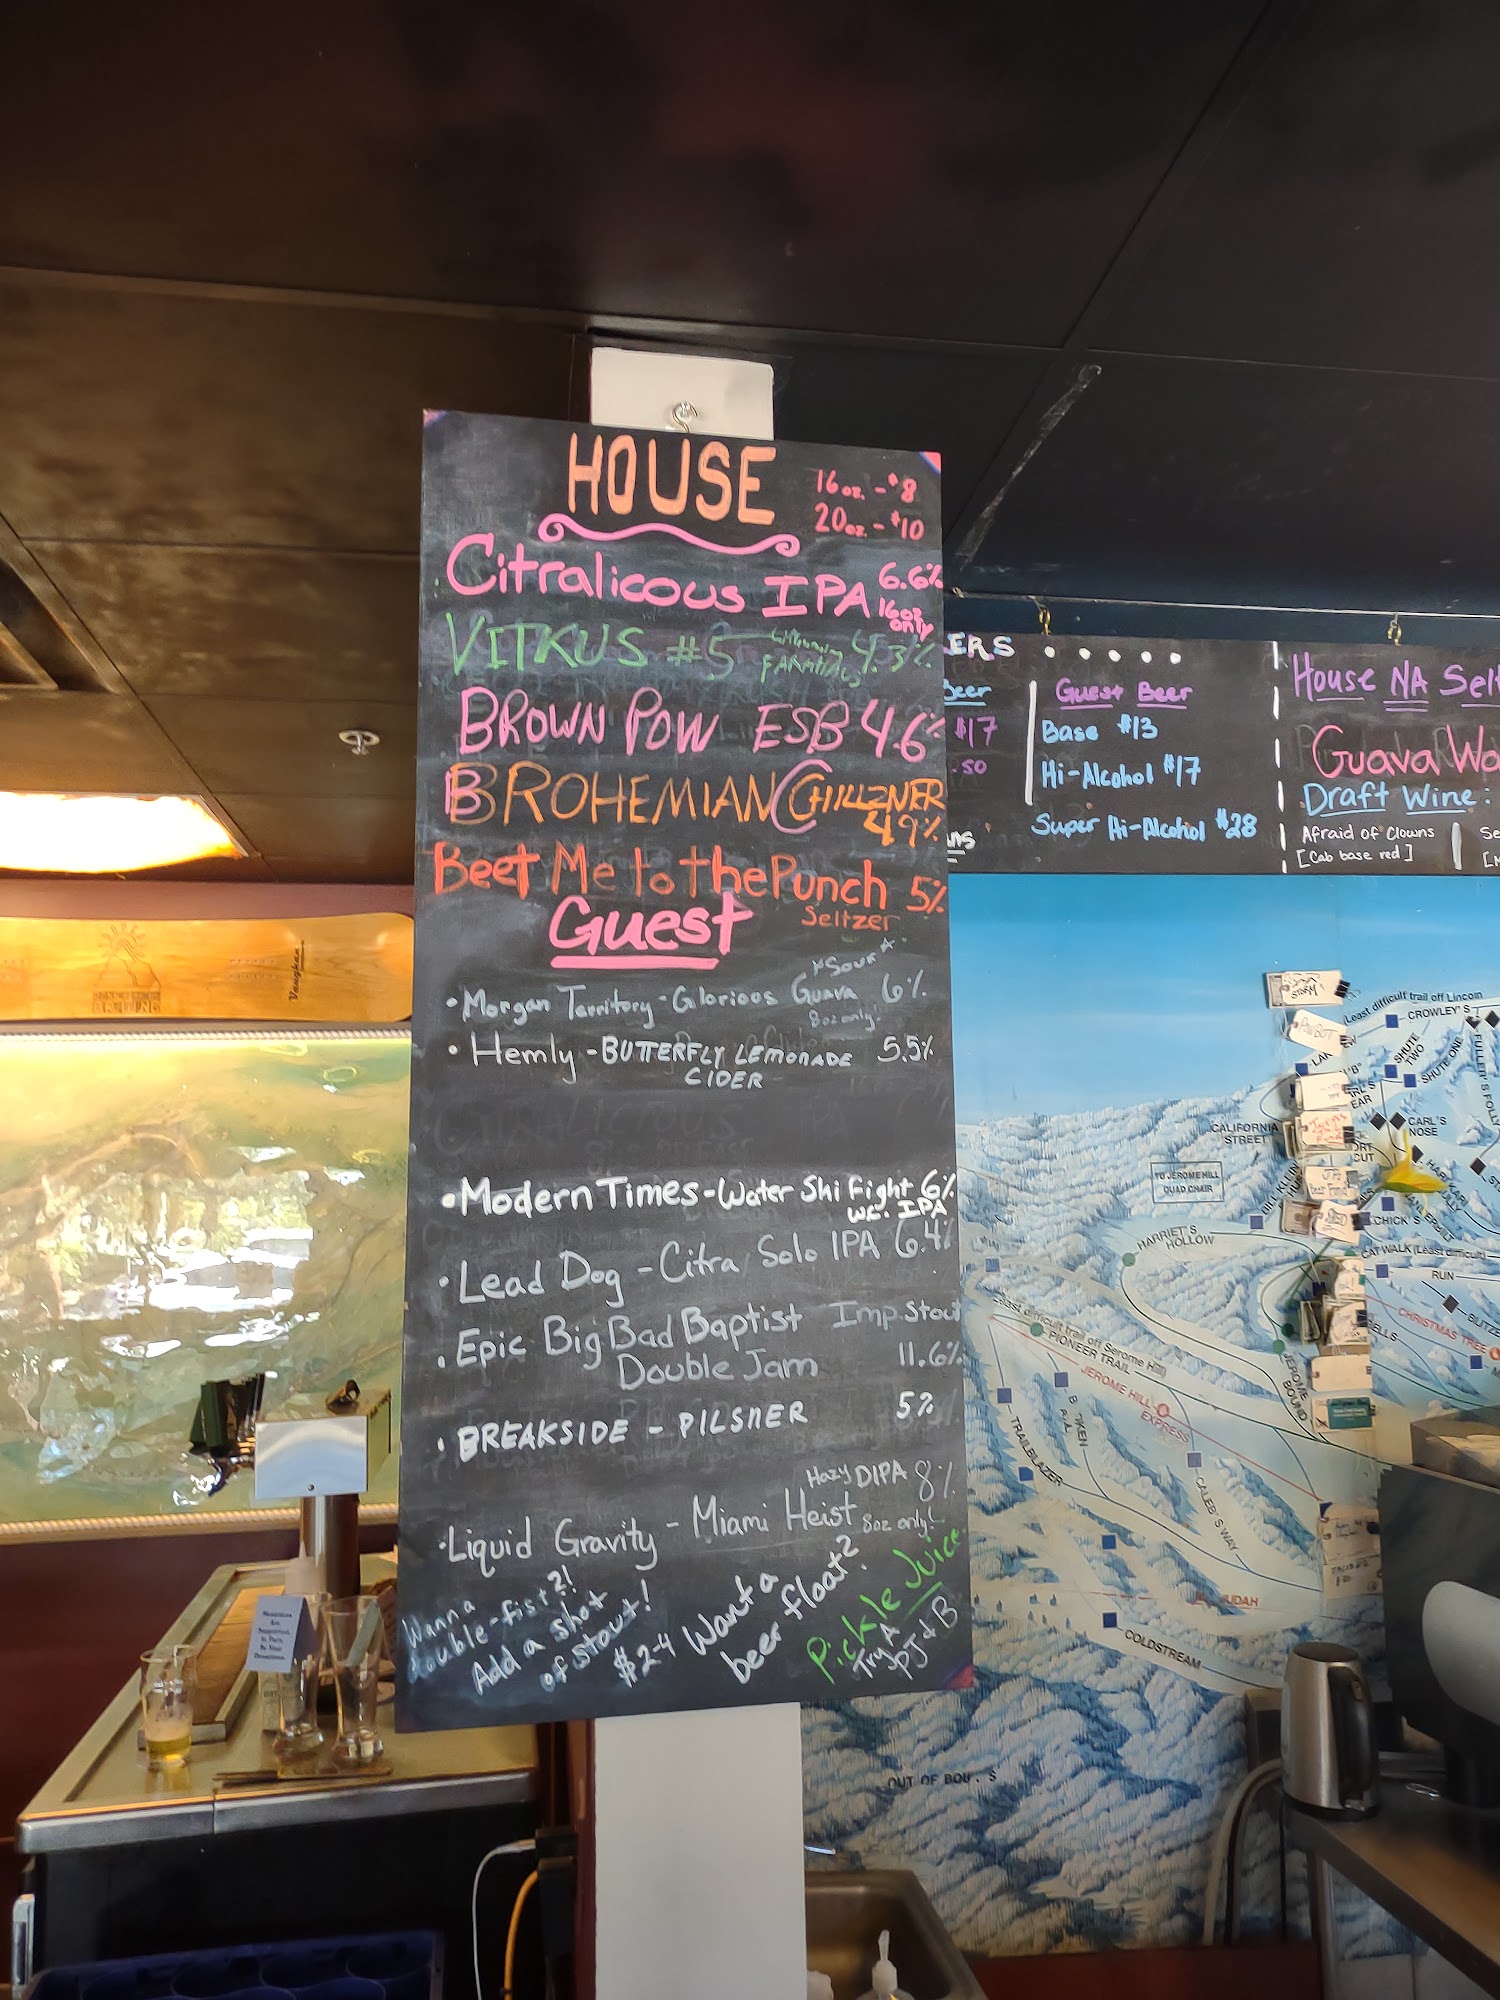 HOUSE
16oz. - $8
20oz. - $10
Citralicous IPA 6.6%
16oz only
VITKUS #5 4.3%
FARMHALS
BROWN POW ESB 4.6%
BROHEMIAN CHILLZNER
4.9%
Beet Me to the Punch 5%
Seltzer
Guest
*Sour*
• Morgan Territory - Glorious Guava 6%
8oz only!
• Hemly - BUTTERFLY LEMONADE 5.5%
CIDER
• Modern Times - Water Ski Fight 6%
W.C. IPA
• Lead Dog - Citra Solo IPA 6.4%
• Epic Big Bad Baptist Imp. Stout
Double Jam 11.6%
• BREAKSIDE - PILSNER 5%
Hazy DIPA 8%
• Liquid Gravity - Miami Heist 8oz only!
Wanna
double-fist?!
Add a shot
of stout!
$2-4
Want a
beer float?
Pickle Juice
Try A
PJ & B
ERS
Beer
$17
.50
Guest Beer
Base $13
Hi-Alcohol $17
Super Hi-Alcohol $28
House NA Selt
Guava Wa
Draft Wine:
Afraid of Clowns
[Cab base red]
Se
STORM
(Least difficult trail off Lincoln
CROWLEY'S
SHUTE TWO
SHUTE ONE
FULLER'S FOLLY
CARL'S NOSE
CALIFORNIA STREET
TO JEROME HILL
QUAD CHAIR
HARRIET'S HOLLOW
CHICK'S
CATWALK (Least difficult)
RUN
CHRISTMAS TREE
(Least difficult trail off Jerome Hill)
PIONEER TRAIL
JEROME HILL
EXPRESS
JEROME BOUND
TRAILBLAZER
CALEB'S WAY
JUDAH
COLDSTREAM
OUT OF BOU S
Vaughan
BREWING